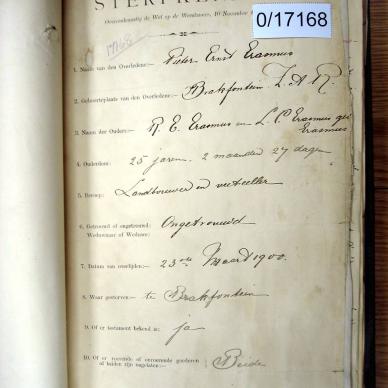 STERFKE
0/17168
Overeenkomstig de Wet op de Weeskamer, 10 November
17168
1. Naam van den Overledene:— Pieter Ernst Erasmus
2. Geboorteplaats van den Overledene:— Brakfontein Z.A.R.
3. Namen der Ouders:— P. E. Erasmus en L. C. Erasmus geb
Erasmus
4. Ouderdom:— 25 jaren. 2 maanden 27 dagen
5. Beroep:— Landbouwer en veeteeller
6. Getrouwd of ongetrouwd:— Ongetrouwd
Weduwnaar of Weduwe:
7. Datum van overlijden:— 23ste Maart 1900.
8. Waar gestorven:— te Brakfontein
9. Of er testament bekend is: ja
10. Of er roerende of onroerende goederen
of beiden zijn nagelaten:— Beide